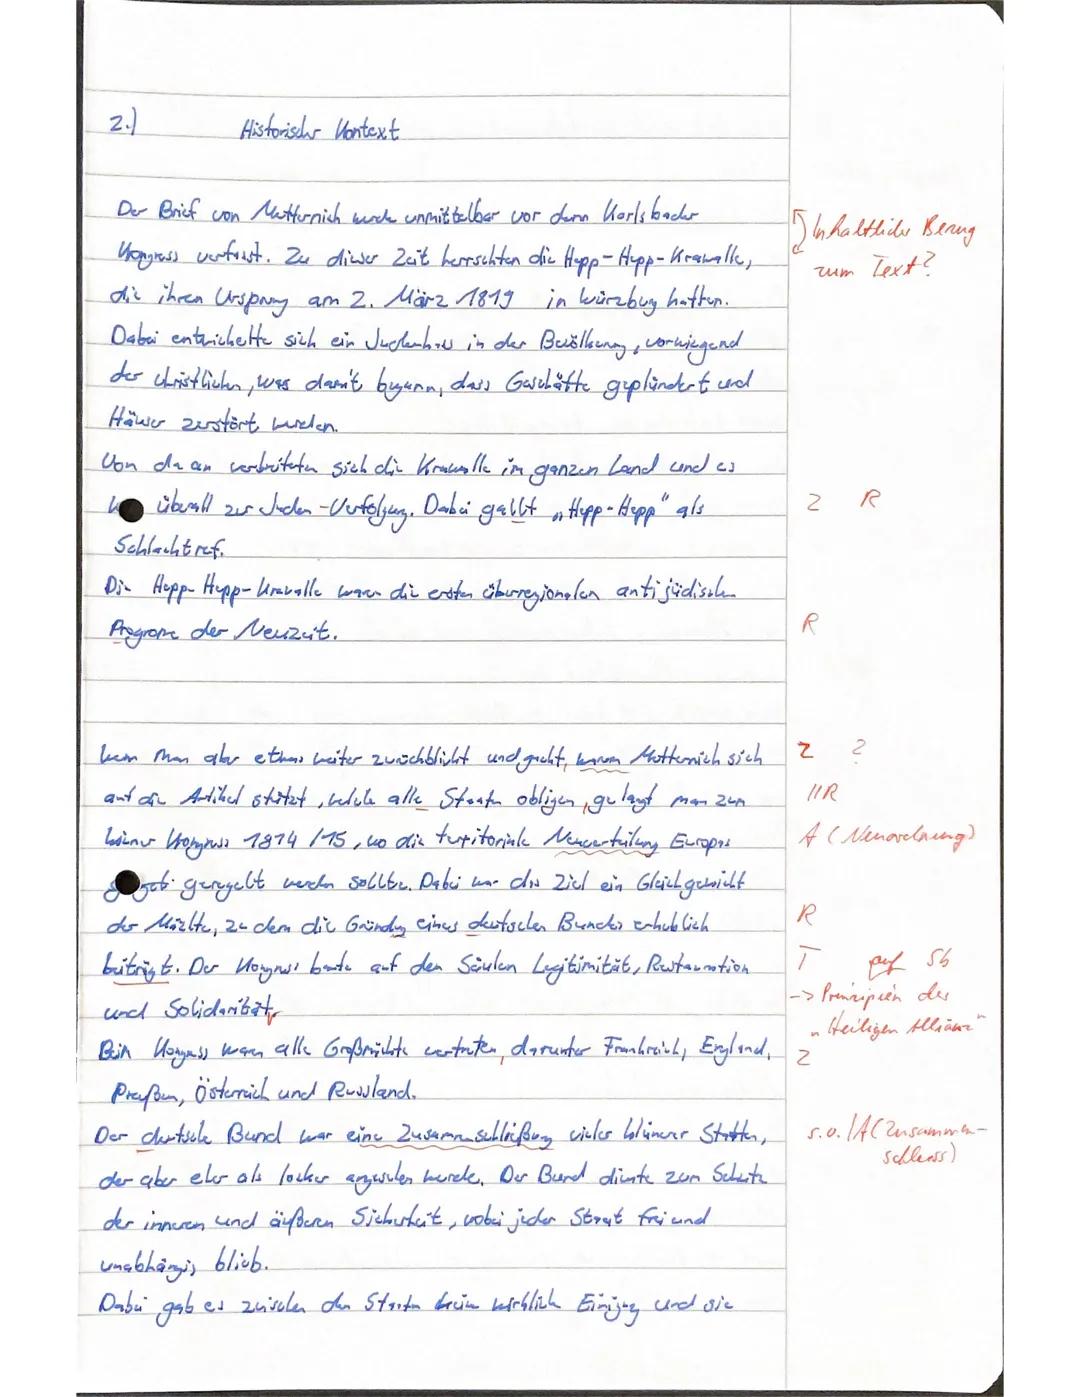 2.) Historischer Kontext
Der Brief von Metternich wurde unmittelbar vor dem Karlsbader
Kongress verfasst. Zu dieser Zeit herrschten die Hepp-Hepp-Krawalle,
die ihren Ursprung am 2. März 1819 in Würzburg hatten.
Dabei entwickelte sich ein Judenhass in der Bevölkerung, vorwiegend
der christlichen, was damit begann, dass Geschäfte geplündert und
Häuser zerstört wurden.
Von da an verbreiteten sich die Krawalle im ganzen Land und es
überall zur Juden-Verfolgung. Dabei gallt „Hepp-Hepp" als
Schlachtruf.
Die Hepp-Hepp-Krawalle waren die ersten überregionalen antijüdischen
Progrome der Neuzeit.
Wenn man aber etwas weiter zurückblickt und guckt, warum Metternich sich
auf die Artikel stützt, welche alle Staaten obligen, gelangt man zum
Wiener Kongress 1814/15, wo die territoriale Neuverteilung Europas
geregelt werden sollte. Dabei war das Ziel ein Gleichgewicht
der Mächte, zu dem die Gründung eines deutschen Bundes erheblich
beiträgt. Der Kongress baute auf den Säulen Legitimität, Restauration
und Solidarität.
Beim Kongress waren alle Großmächte vertreten, darunter Frankreich, England,
Preußen, Österreich und Russland.
Der deutsche Bund war eine Zusammenschließung vieler kleinerer Staaten,
der aber eher als locker angesehen wurde. Der Bund diente zum Schutz
der inneren und äußeren Sicherheit, wobei jeder Staat frei und
unabhängig blieb.
Dabei gab es zwischen den Staaten keine wirklich Einigung und sie
Inhaltlicher Bezug
zum Text?
Z R
R
Z ?
//R
A (Neuordnung)
R
T Sb
-> Prinzipien der
„Heiligen Allianz"
Z
s.o. /A (Zusammen-
schluss)